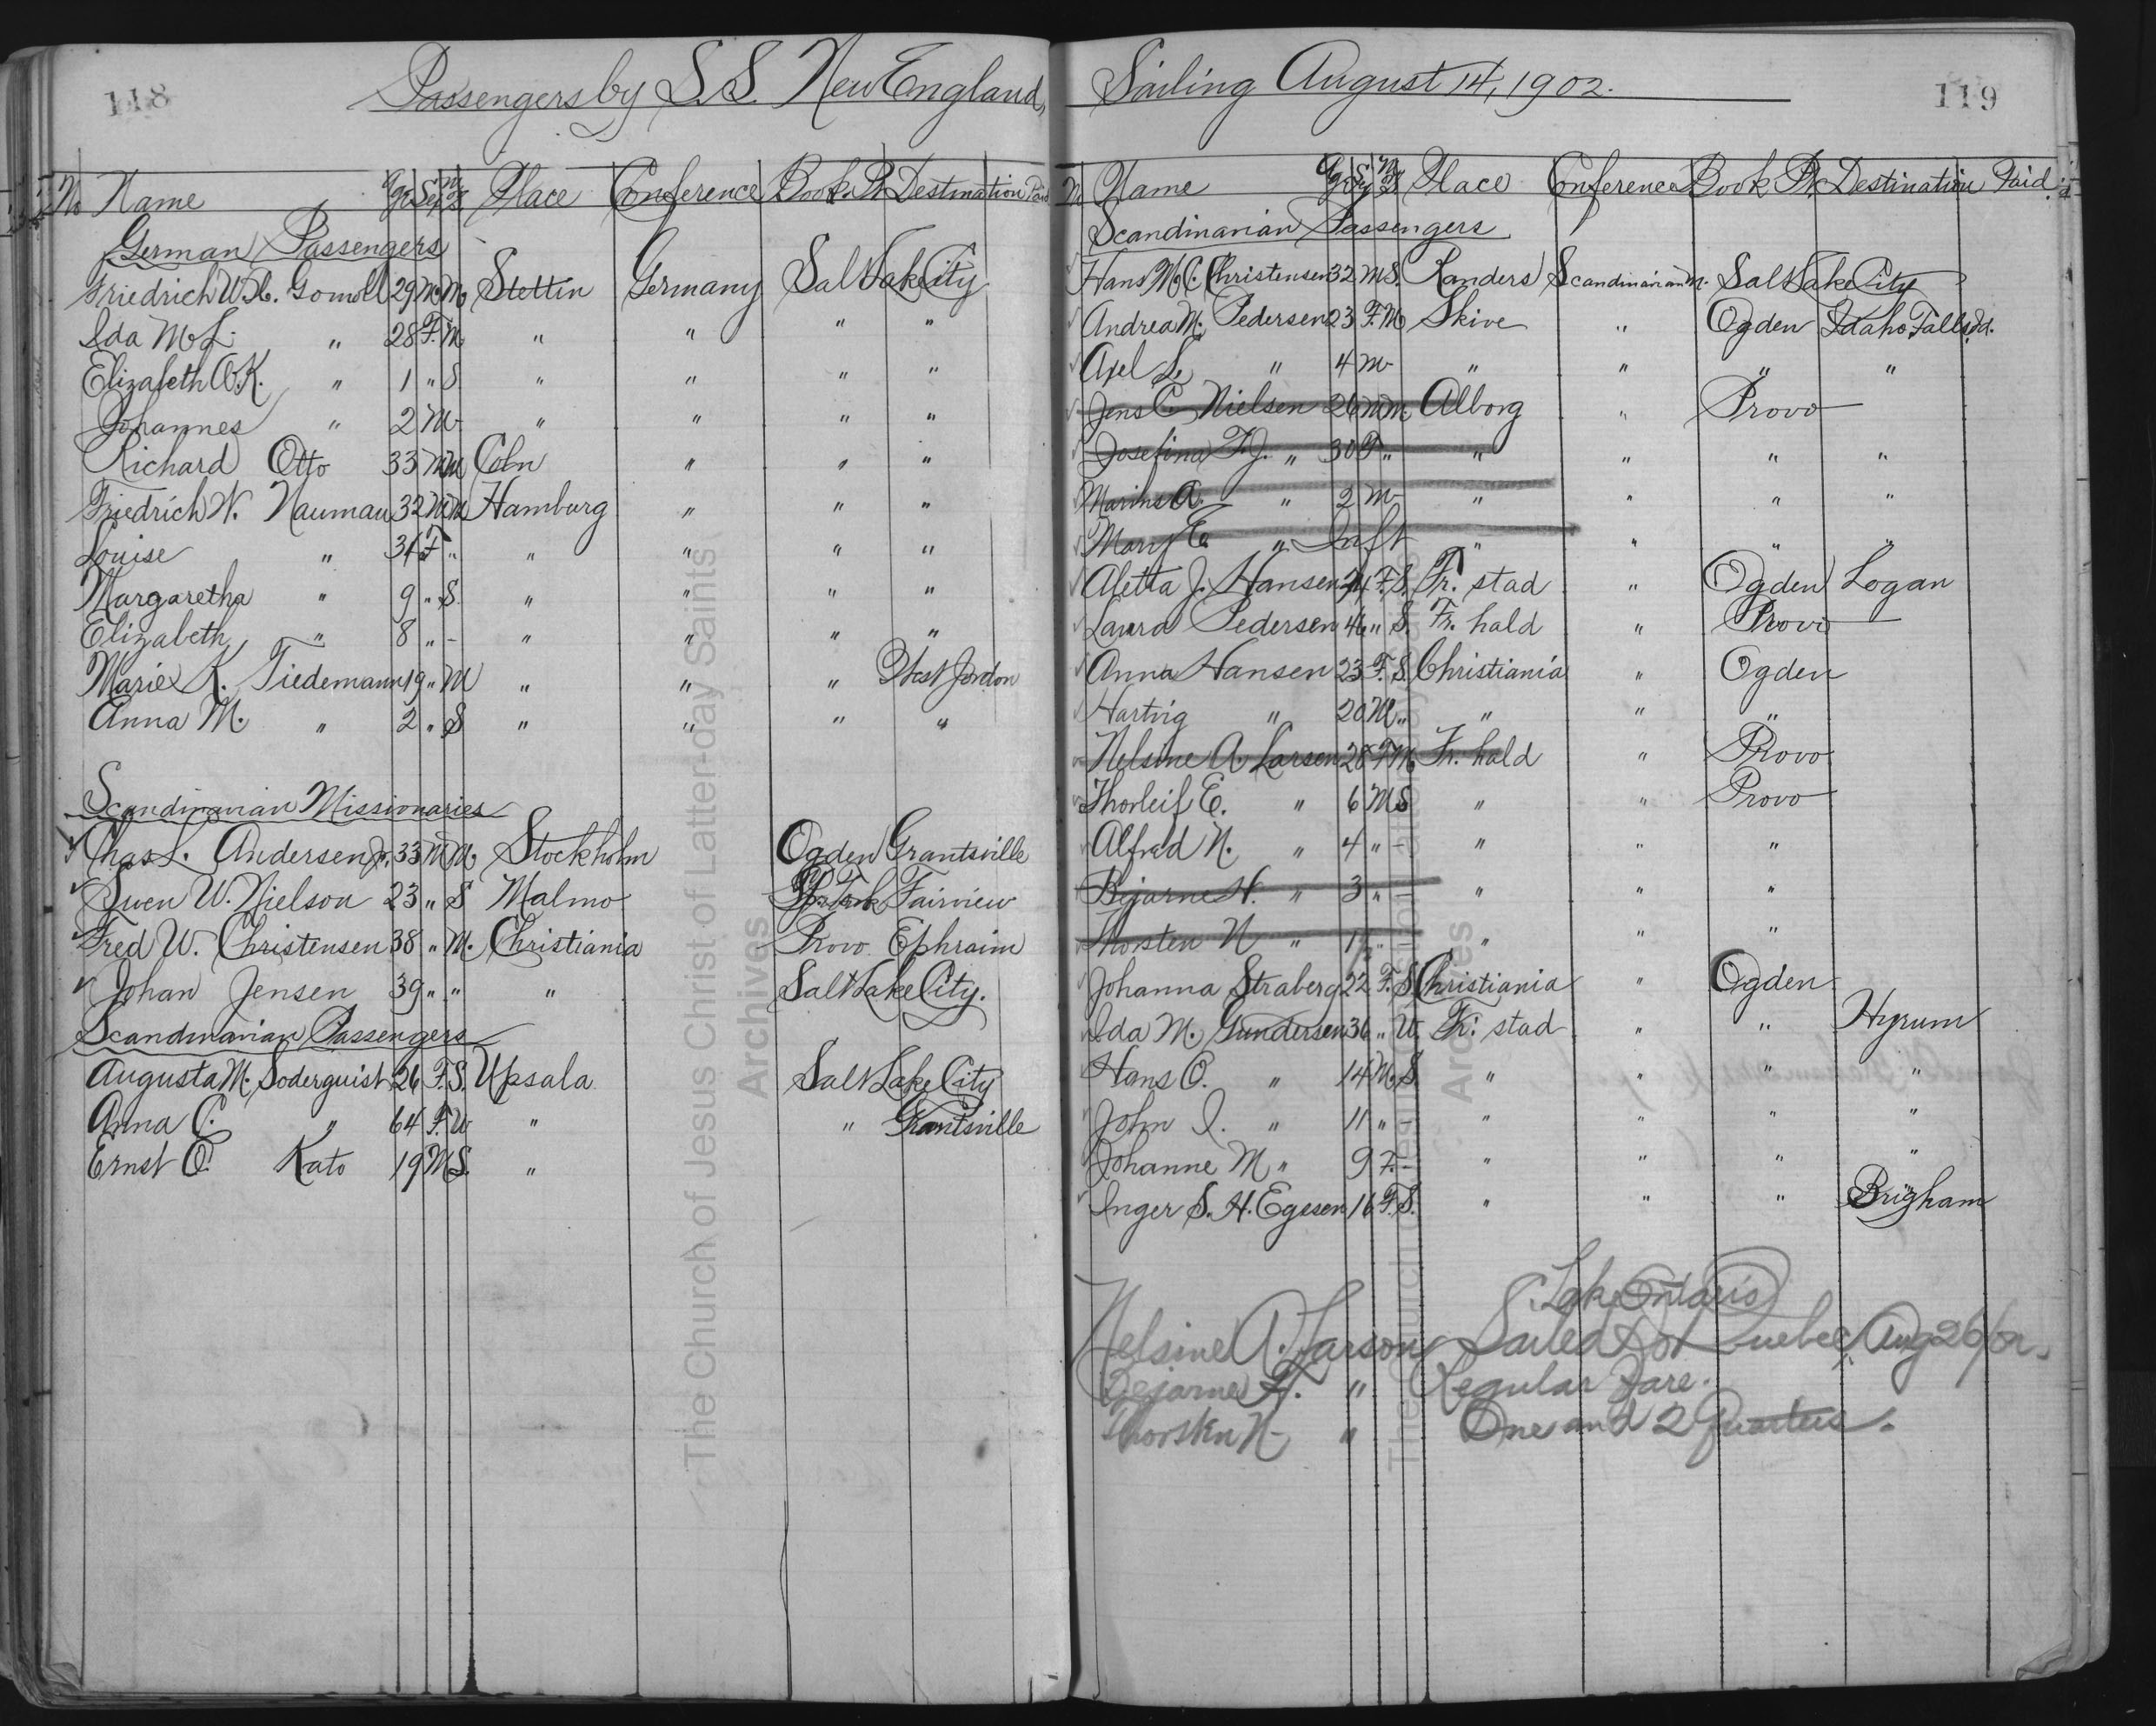 118
Passengers by S.S. New England,
No Name Age Sex M S Place Conference Book Pt. Destination Paid
German Passengers
Friedrich W. A. Gomoll 29 M. M. Stettin Germany Salt Lake City
Ida M. L. " 28 F. M " " " "
Elizabeth A. K. " 1 " S " " " "
Johannes " 2 M - " " " "
Richard Otto 33 M M Coln " " "
Friedrich W. Nauman 32 M M Hamburg " " "
Louise " 34 F " " " " "
Margaretha " 9 " S " " " "
Elizabeth " 8 " - " " " "
Marie K. Tiedemann 19 " M " " " West Jordon
Anna M. " 2 " S " " " "
Scandinavian Missionaries
Chas L. Andersen Jr. 33 M M. Stockholm Ogden Grantsville
Swen W. Nielson 23 " S Malmo Fairview
Fred W. Christensen 38 " M. Christiania Provo Ephraim
Johan Jensen 39 " " " Salt Lake City.
Scandinavian Passengers
Augusta M. Soderquist 26 F. S. Upsala Salt Lake City
Anna C. " 64 F. W " " Grantsville
Ernst O. Kato 19 M S. "
Sailing August 14, 1902.
119
No Name Age Sex M S Place Conference Book Pt. Destination Paid
Scandinavian Passengers
Hans M. C. Christensen 32 M S. Randers Scandinavian M. Salt Lake City
Andrea M. Pedersen 23 F. M Skive " Ogden Idaho Falls, Id.
Axel L. " 4 M - " " " "
Jens C. Nielsen 26 M M. Alborg " Provo
Josefina F. J. " 30 F " " " " "
Marius A. " 2 M - " " " "
Mary E. " Inft " " " "
Aletta J. Hansen 24 F. S. Fr. stad " Ogden Logan
Laura Pedersen 46 " S. Fr. hald " Provo
Anna Hansen 23 F. S. Christiania " Ogden
Hartvig " 20 M " " " "
Nelsine A. Larsen 28 F M. Fr. hald " Provo
Thorleif E. " 6 M S " " Provo
Alfred N. " 4 " - " " "
Bejarne H. " 3 " - " " "
Thorsten N " 1 " " " "
Johanna Straberg 22 F. S. Christiania " Ogden
Ida M. Gundersen 36 " W. Fr. stad " " Hyrum
Hans O. " 14 M. S. " " " "
John I. " 11 " - " " " "
Johanne M " 9 F. - " " " "
Inger S. H. Egesen 16 F. S. " " " Brigham
Lake Ontario
Nelsine A. Larson Sailed for Quebec Aug 26/02.
Bejarne H. " Regular Fare.
Thorsten N - " One and 2 Quarters.
The Church of Jesus Christ of Latter-day Saints
Archives
The Church of Jesus Christ of Latter-day Saints
Archives